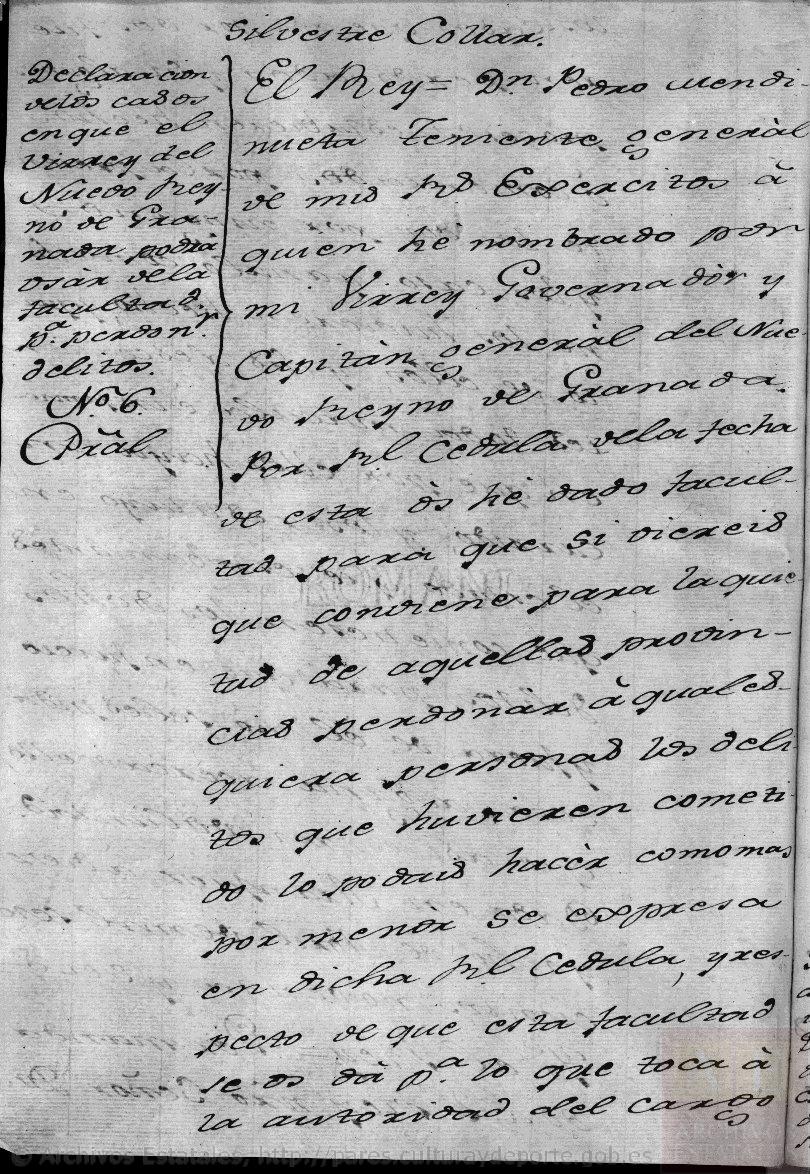 Silvestre Collar.
Declaracion
delos casos
enque el
Virrey del
Nuevo Rey-
no de Gra-
nada podrà
usàr dela
facultad
pª. perdonr.
delitos.
No. 6.
Pràl
El Rey = Dn. Pedro Mendi-
nueta Teniente generàl
de mis Rs Exercitos à
quien he nombrado por
mi Virrey Governadòr y
Capitàn generàl del Nue-
vo Reyno de Granada.
Por Rl Cedula dela fecha
de esta òs hé dado facul-
tad para que si viereis
que conviene para la quie
tud de aquellas provin-
cias perdonàr à quales-
quiera personas los deli-
tos que huvieren cometi-
do lo podais hacèr como mas
por menòr se expresa
en dicha Rl Cedula, y res-
pecto de que esta facultad
se os dà pª. lo que toca à
la autoridad del cargo
© Archivos Estatales, http://pares.culturaydeporte.gob.es